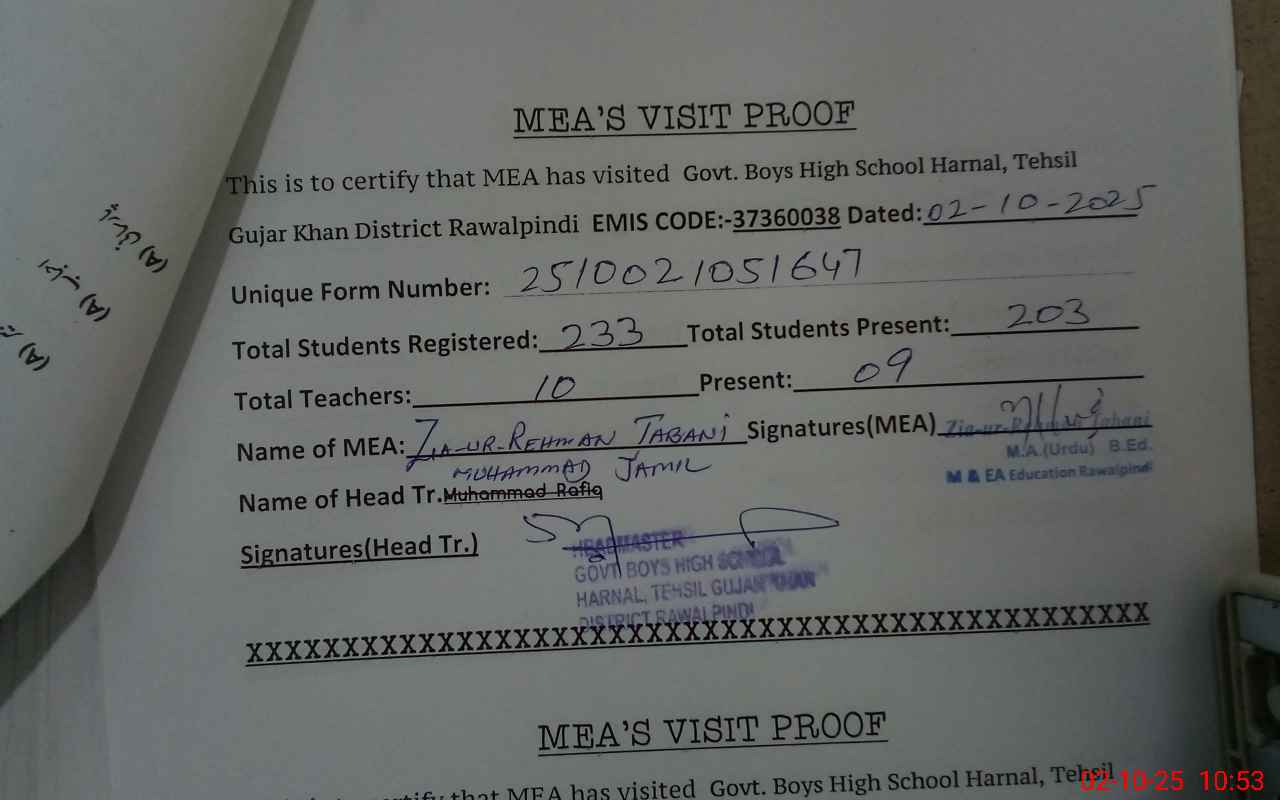 MEA'S VISIT PROOF
This is to certify that MEA has visited Govt. Boys High School Harnal, Tehsil
Gujar Khan District Rawalpindi EMIS CODE:-37360038 Dated: 02-10-2025
Unique Form Number: 2510021051647
Total Students Registered: 233 Total Students Present: 203
Total Teachers: 10 Present: 09
Name of MEA: ZIA-UR-REHMAN TABANI Signatures(MEA) Zia-ur-Rehman Tabani
M.A.(Urdu) B.Ed.
M & EA Education Rawalpindi
MUHAMMAD JAMIL
Name of Head Tr. Muhammad Rafiq
Signatures(Head Tr.)
HEADMASTER
GOVT BOYS HIGH SCHOOL
HARNAL, TEHSIL GUJAR KHAN
DISTRICT RAWALPINDI
XXXXXXXXXXXXXXXXXXXXXXXXXXXXXXXXXXXXXXXXXXXXXXX
MEA'S VISIT PROOF
certify that MEA has visited Govt. Boys High School Harnal, Tehsil
02-10-25 10:53